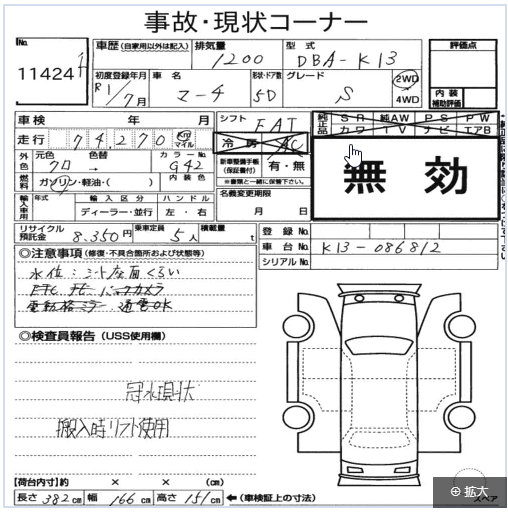 事故・現状コーナー
No. 11424
車歴 (自家用以外は記入) 排気量 1200 型式 DBA-K13 評価点
初度登録年月 R1/7月 車名 マーチ 形状・ドア数 5D グレード S 2WD 4WD 内装補助評価
車検 年 月 シフト FAT 純正品 SR 純AW PS PW カワ TV ナビ エアB
走行 74,270 Km マイル 冷房 AC
外色 元色 クロ 色替 → カラーNo. G42 新車整備手帳(保証書付) 有・無
燃料 ガソリン・軽油・( ) 内装色 ※書類と一緒に保管下さい。
無効
輸入車用 年式 輸入区分 ディーラー・並行 ハンドル 左・右 名義変更期限 月 日
リサイクル預託金 8,350円 乗車定員 5人 積載量 t
登録No.
車台No. K13-086812
シリアルNo.
◎注意事項 (修復・不具合箇所および状態等)
水位:シート座面くらい
ETC ナビ バックカメラ
電動格ミラー 通電OK
◎検査員報告 (USS使用欄)
冠水現状
搬入時リフト使用
【荷台内寸】約 × × (cm)
長さ 382 cm 幅 166 cm 高さ 151 cm ←(車検証上の寸法)
スペア
拡大